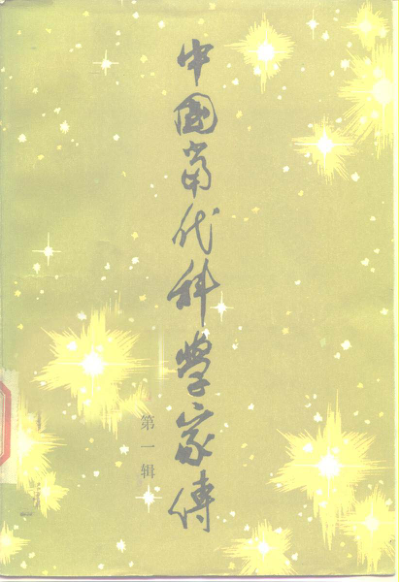 中國當代科学家傳
第一辑